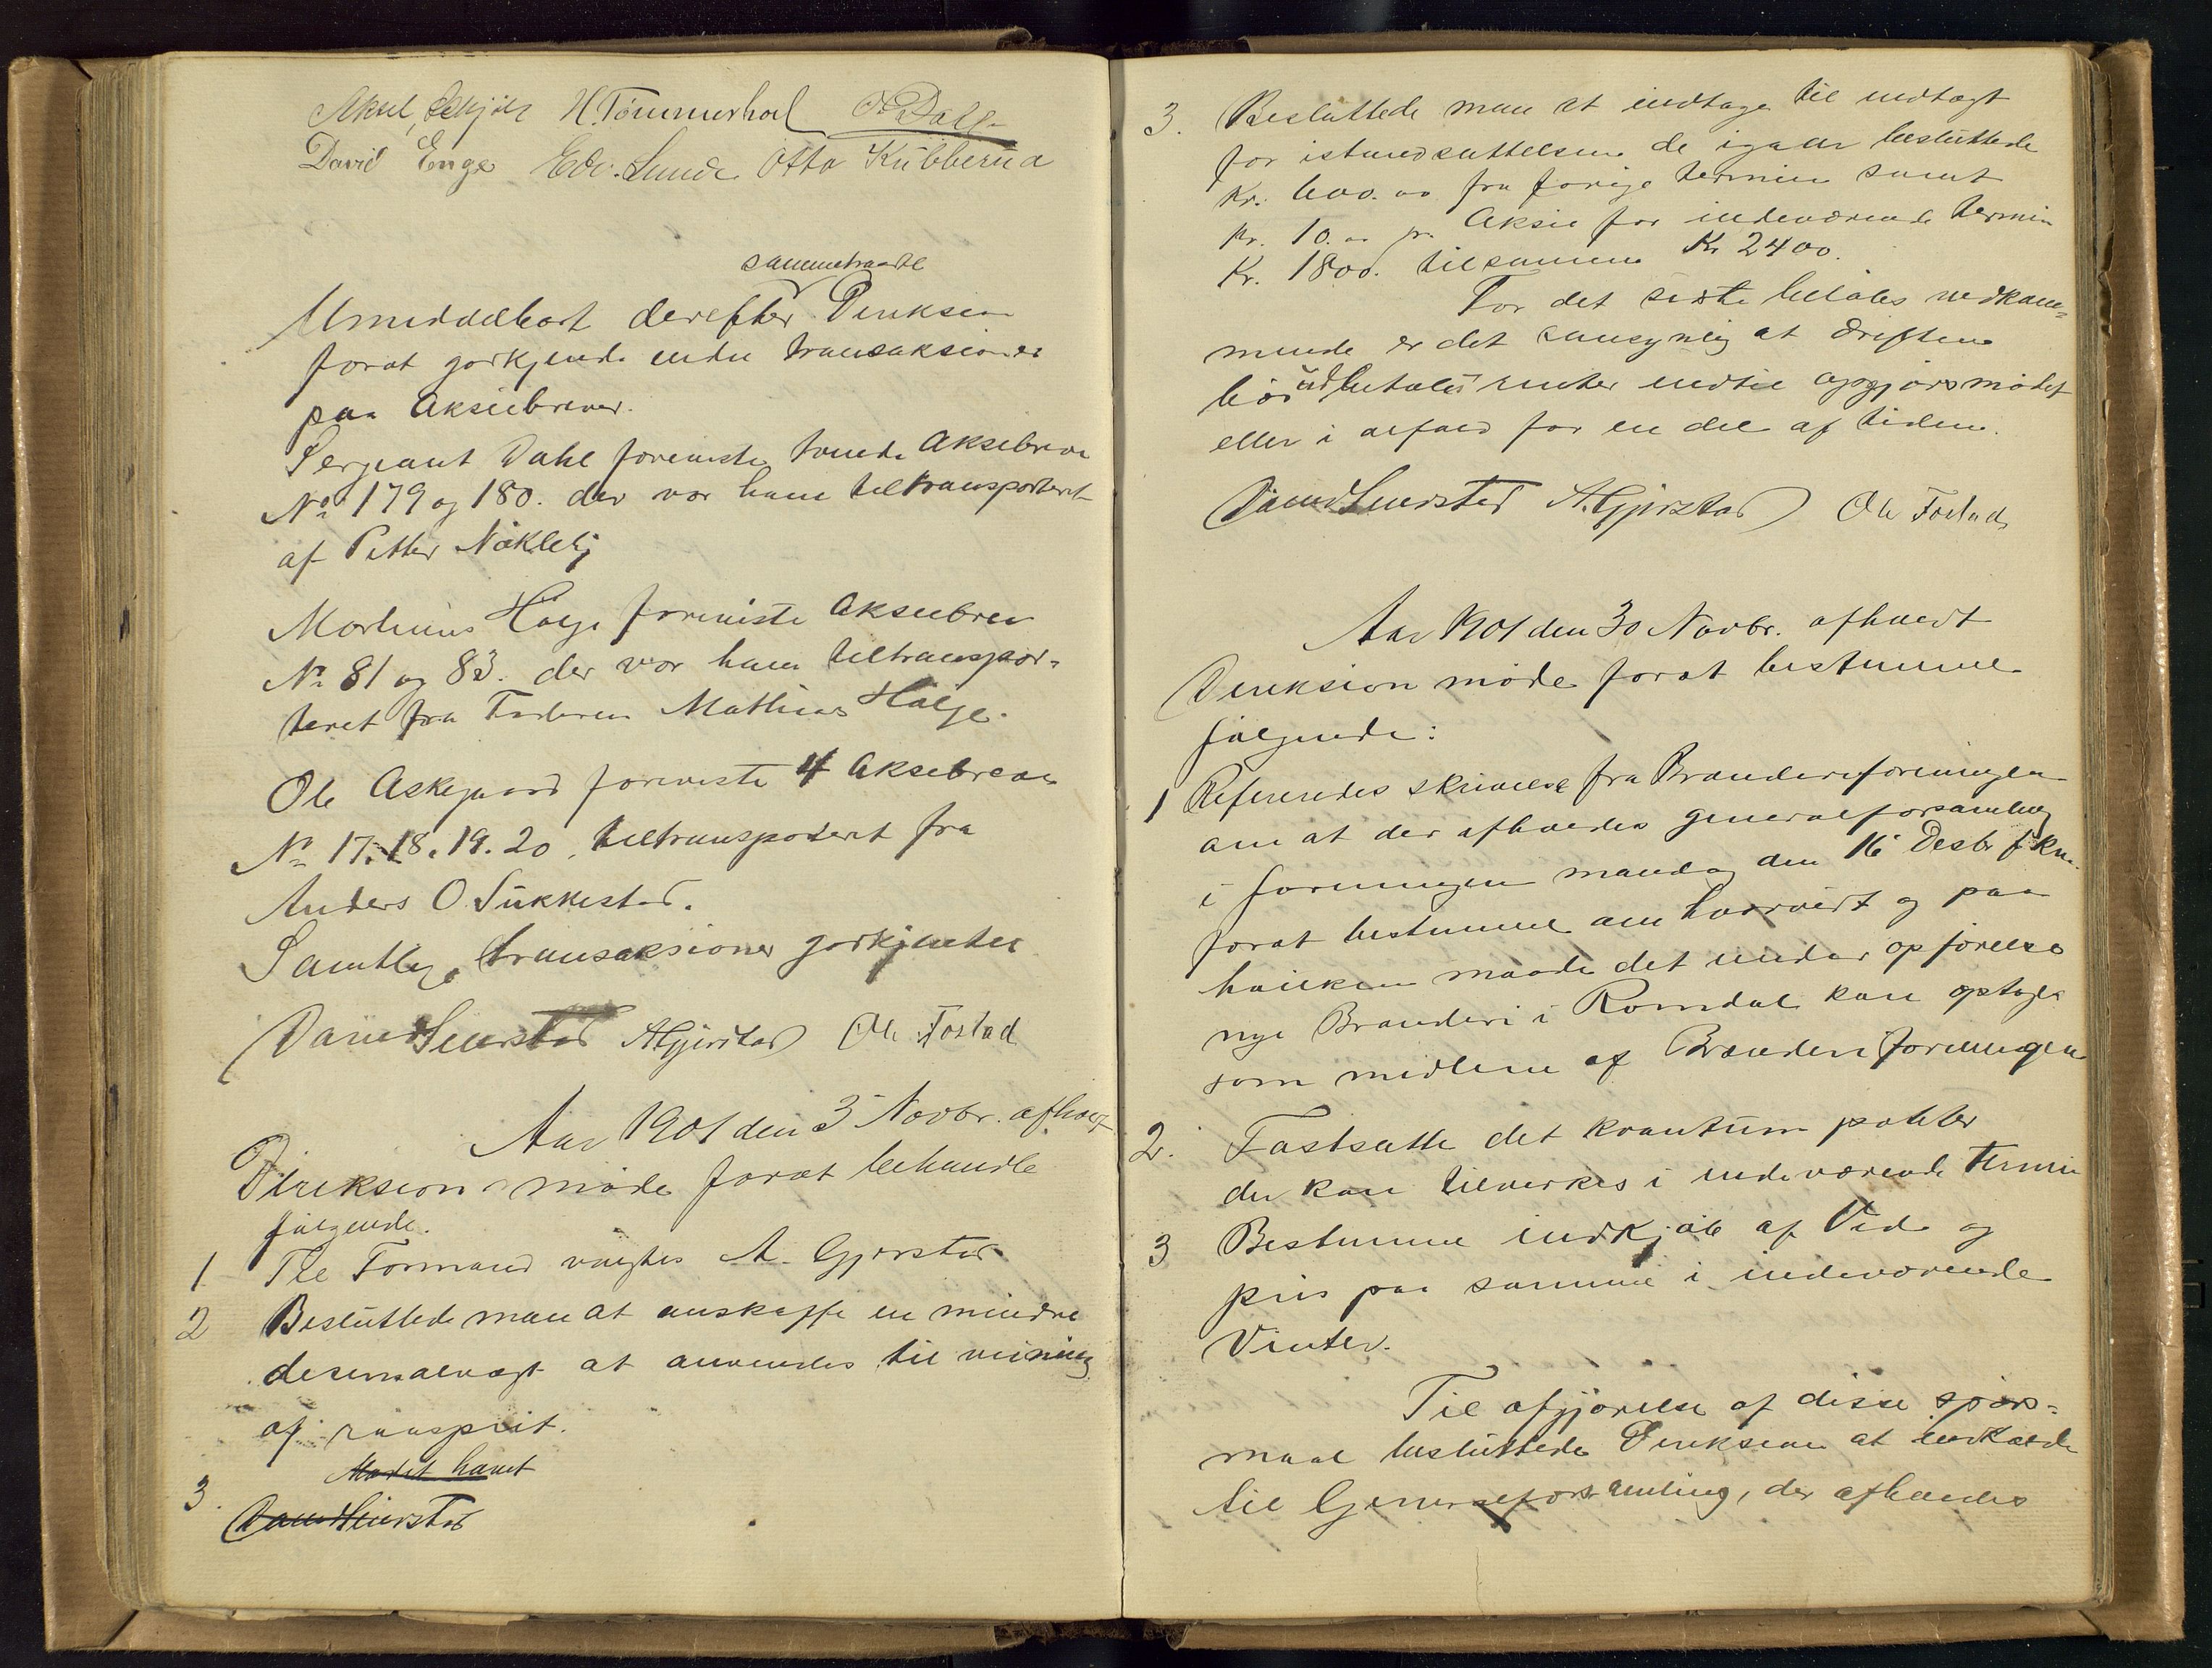 Aksel H. Tömmerhol O Dahl
David Enge Edv. Lunde Otto Kübberud
sammentraadte
Umiddelbart derefter Direksion
forat godkjende endel transaksioner
paa Aksiebrever.
Sergeant Dahl foreviste tvende Aksiebreve
No 179 og 180. der var ham tiltransporteret
af Petter Nökleby
Martinius Holje foreviste Aksiebrev
No 81 og 83. der var ham tiltranspor-
teret fra Faderen Mathias Holje.
Ole Askegaard foreviste 4 Aksiebreve
No 17. 18. 19. 20. tiltransporteret fra
Anders O. Sukkestad.
Samtlige transaksioner godkjentes
A Gjerstad Ole Fostad
Aar 1901 den 5 Novbr. afholdt
Direksion möde forat behandle
fölgende.
1 Till Formand valgtes A. Gjerstad
2 Besluttede man at anskaffe en mindre
desimalvægt at anvendes til veining
af raasprit.
3. Mødet hævet
3. Besluttede man at indtage til indtægt
for istandsættelsen de igaar besluttede
Kr. 600.00 fra forrige termin samt
Kr. 10.00 pr. Aksie for indeværende termin
Kr. 1800. tilsammen Kr 2400.
For det sidste beløbs vedkom-
mende er det sansynlig at driften
bör udbetales renter indtil opgjörsmödet
eller i alfald for en del af tiden.
A. Gjerstad Ole Fostad
Aar 1901 den 30 Novbr. afholdt
Direksion möde forat bestemme
fölgende:
1 Refereredes skrivelse fra Brænderiforeningen
om at der afholdes generalforsamling
i foreningen mandag den 16 Desbr f.k.
forat bestemme om hvorvidt og paa
hvilken maade det under opförelse
nye Brænderi i Romdal kan optages
som medlem af Brænderiforeningen
2. Fastsatte det kvantum poteter
der kan tilvirkes i indeværende Termin
3 Bestemme indkjöb af Ved og
pris paa samme i indeværende
Vinter.
Til afgjörelse af disse spörs-
maal besluttede Direksion at indkalde
til Generalforsamling, der afholdes